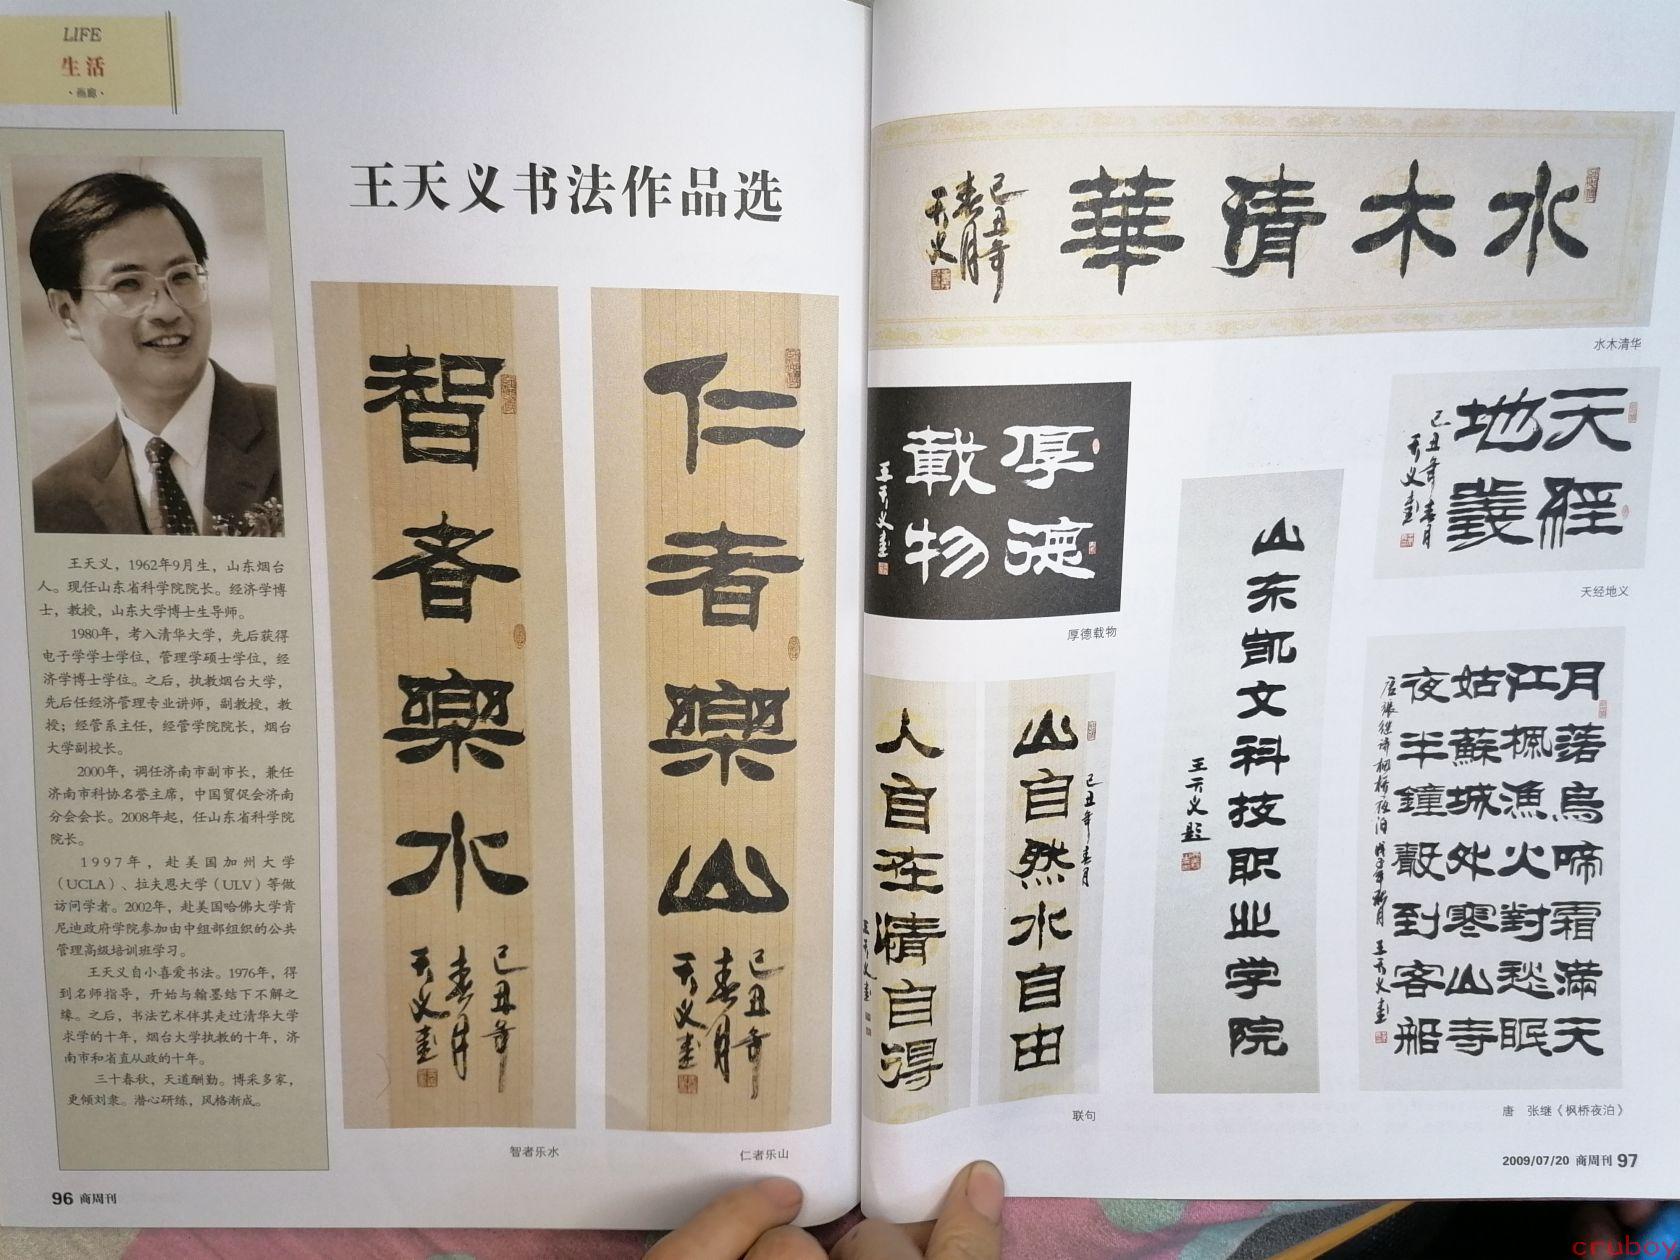 LIFE
生活
·画廊·
王天义书法作品选
王天义，1962年9月生，山东烟台
人。现任山东省科学院院长。经济学博
士，教授，山东大学博士生导师。
1980年，考入清华大学，先后获得
电子学学士学位，管理学硕士学位，经
济学博士学位。之后，执教烟台大学，
先后任经济管理专业讲师，副教授，教
授；经管系主任，经管学院院长，烟台
大学副校长。
2000年，调任济南市副市长，兼任
济南市科协名誉主席，中国贸促会济南
分会会长。2008年起，任山东省科学院
院长。
1997年，赴美国加州大学
（UCLA）、拉夫恩大学（ULV）等做
访问学者。2002年，赴美国哈佛大学肯
尼迪政府学院参加由中组部组织的公共
管理高级培训班学习。
王天义自小喜爱书法。1976年，得
到名师指导，开始与翰墨结下不解之
缘。之后，书法艺术伴其走过清华大学
求学的十年，烟台大学执教的十年，济
南市和省直从政的十年。
三十春秋，天道酬勤。博采多家，
更倾刘隶。潜心研练，风格渐成。
智者樂水
己丑年
春月
天义書
智者乐水
仁者樂山
己丑年
春月
天义書
仁者乐山
96 商周刊
水木清華
己丑年
春月
天义
水木清华
厚德
載物
王天义書
厚德载物
天經
地義
己丑年春月
天义書
天经地义
山自然水自由
己丑年春月
人自在情自得
王天义書
联句
山东凯文科技职业学院
王天义题
月落烏啼霜滿天
江楓漁火對愁眠
姑蘇城外寒山寺
夜半鐘聲到客船
唐張继诗枫桥夜泊 戊子年秋月 王天义書
唐 张继《枫桥夜泊》
2009/07/20 商周刊 97
cruboy